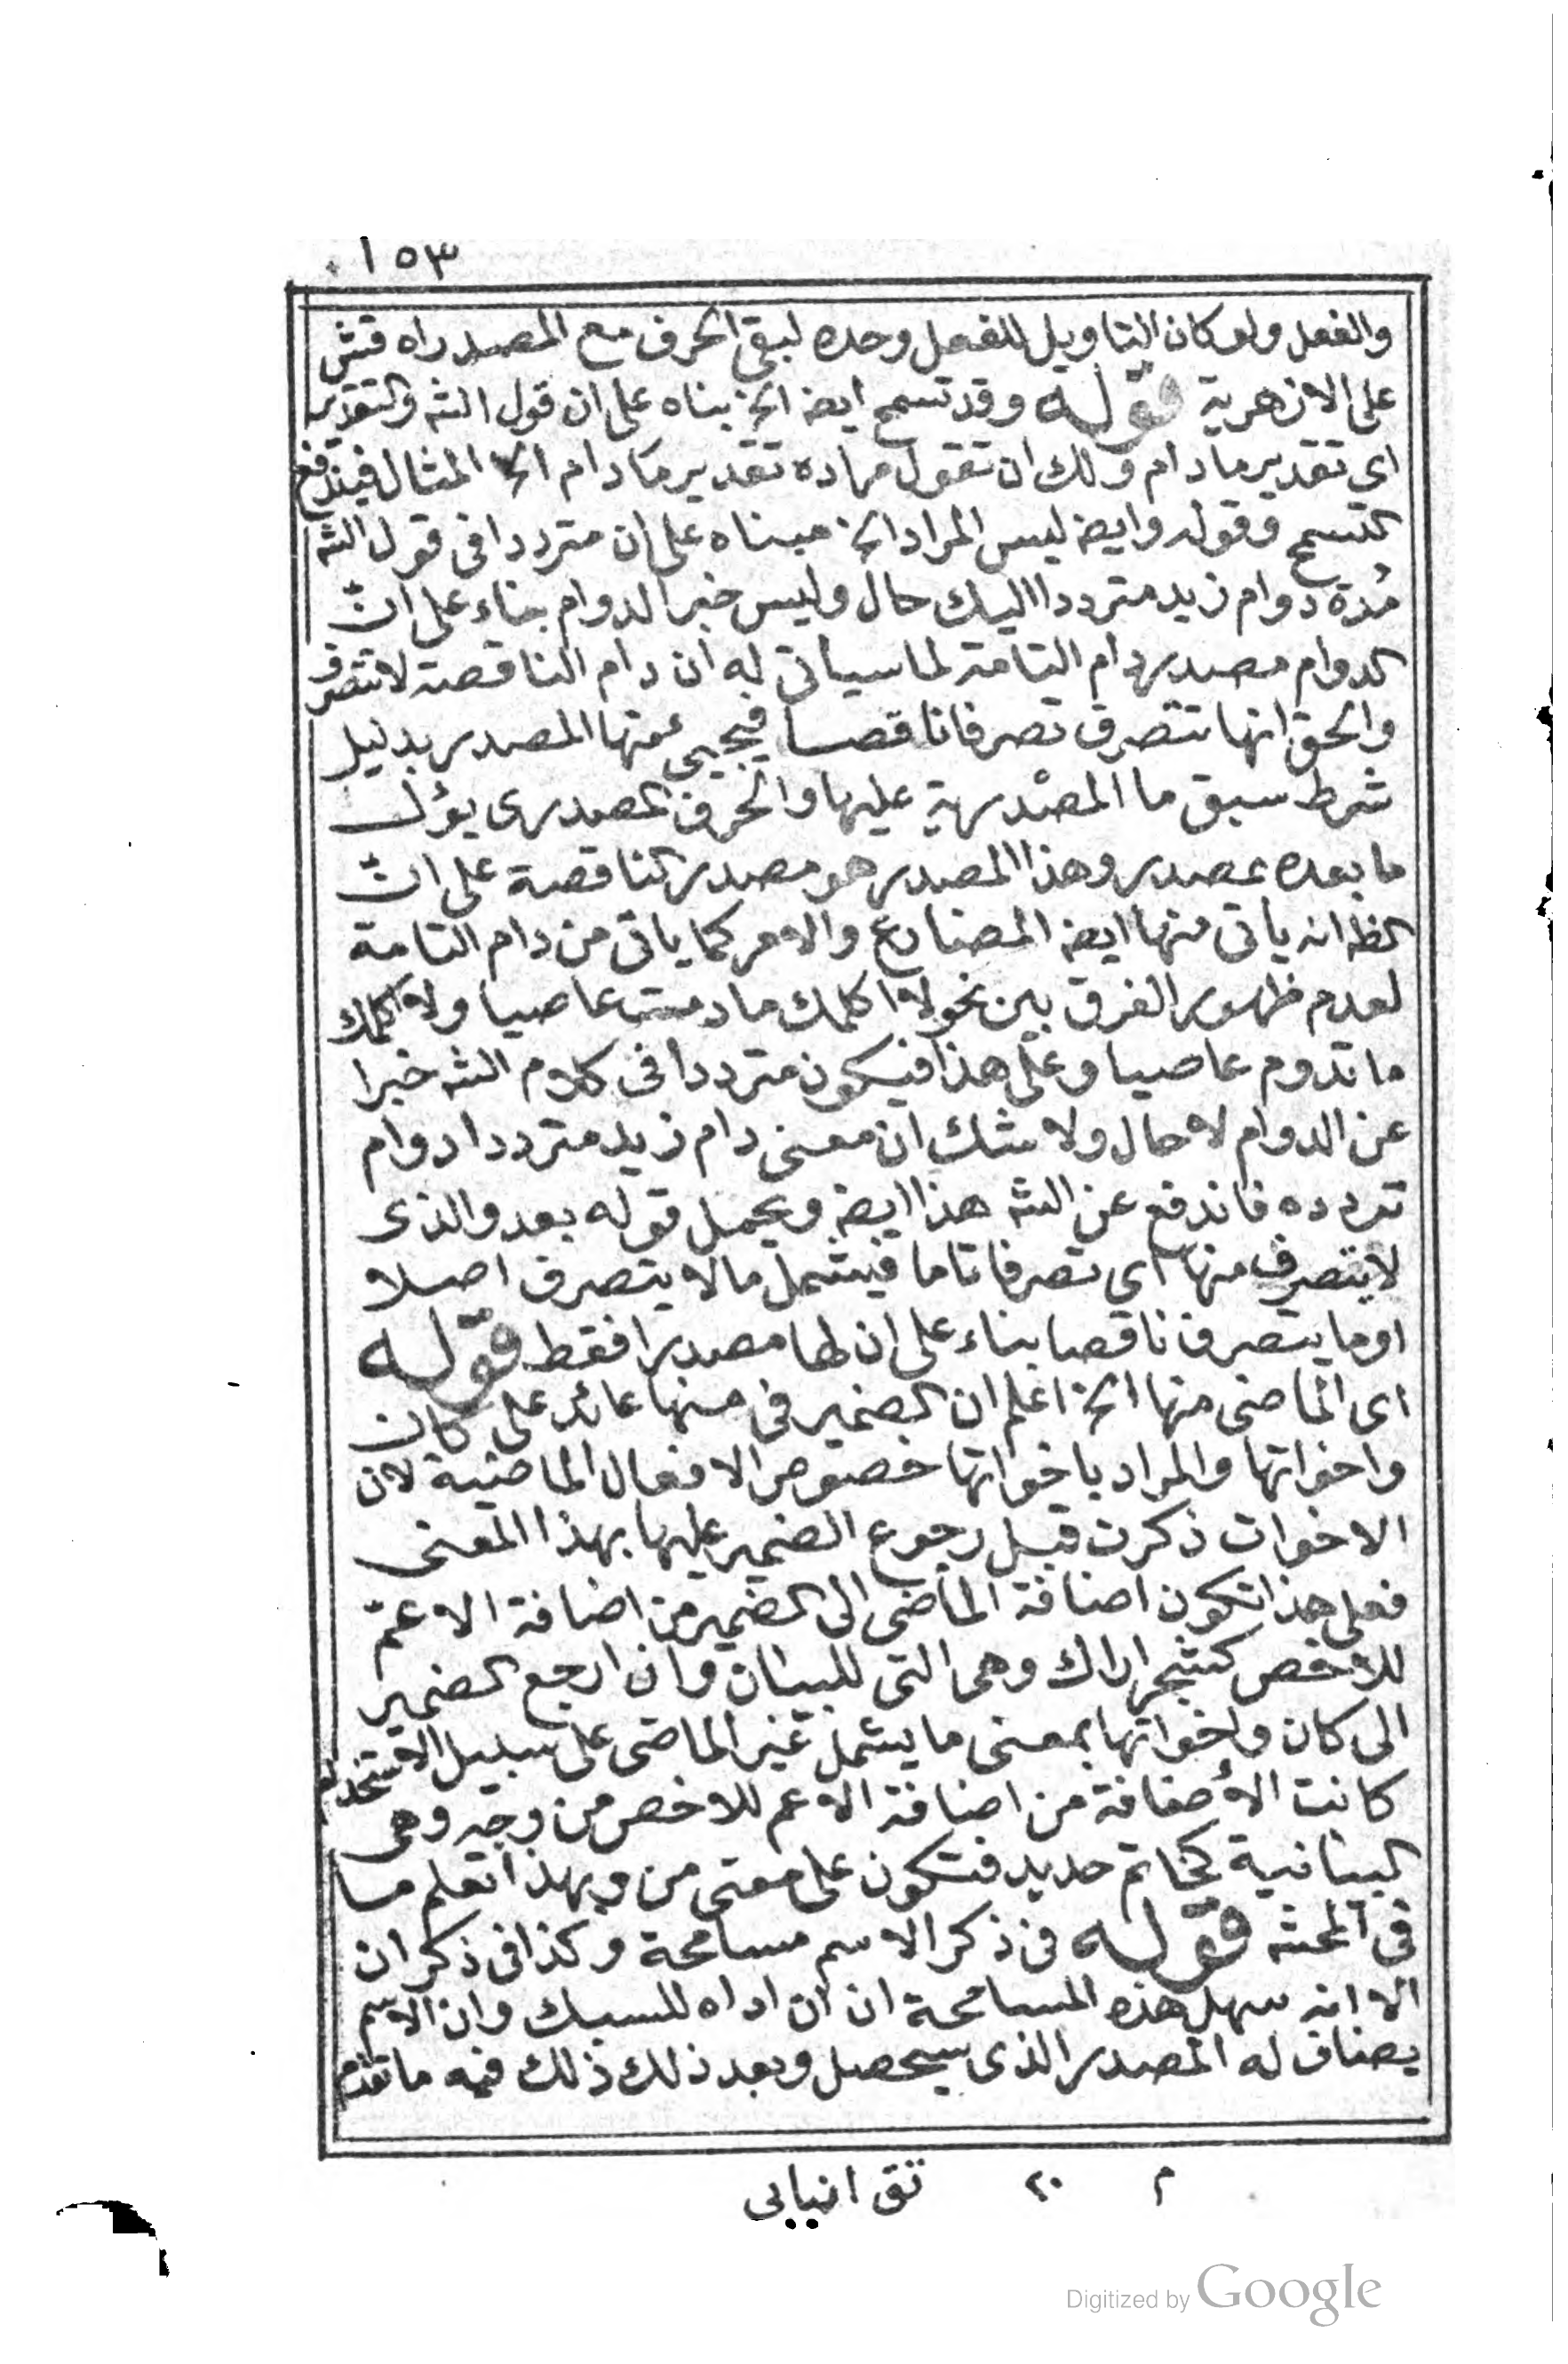 ١٥٣
والفعل ولو كان التاويل للفعل وحده لبقى الحرف مع المصدر اه قش
على الازهرية قوله وقد تسمح ايضه الخ بناه على ان قول الشه والتقدير
اى تقدير ما دام ولك ان تقول مراده تقدير ما دام الخ المثال فيندفع
التسمح وقوله وايضه ليس المراد الخ مبناه على ان مترددا فى قول الشه
مُدة دوام زيد مترددا اليك حال وليس خبرا لدوام بناء على انّ
الدوام مصدر دام التامة لما سياتى له ان دام الناقصة لا تتصرف
والحق انها تتصرف تصرفا ناقصا فيجيى منها المصدر بدليل
شرط سبق ما المصدرية عليها والحرف المصدرى يؤل
ما بعده بمصدر وهذا المصدر هو مصدر الناقصة على انّ
الظه انه ياتى منها ايضه المضارع والامر كما ياتى من دام التامة
لعدم ظهور الفرق بين نحو لا اكلمك ما دمت عاصيا ولا اكلمك
ما تدوم عاصيا وعلى هذا فيكون مترددا فى كلام الشه خبرا
عن الدوام لا حال ولا شك ان معنى دام زيد مترددا دوام
تردده فاندفع عن الشه هذا ايضه ويحمل قوله بعد والذى
لا يتصرف منها اى تصرفا تاما فيشمل مالا يتصرف اصلا
او ما يتصرف ناقصا بناء على ان لها مصدرا فقط قوله
اى الماضى منها الخ اعلم ان الضمير فى منها عائد على كان
واخواتها والمراد باخواتها خصوص الافعال الماضية لان
الاخوات ذكرت قبل رجوع الضمير عليها بهذا المعنى
فعلى هذا تكون اضافة الماضى الى الضمير من اضافة الاعمّ
للاخص كشجر اراك وهى التى للبيان وان ارجع الضمير
الى كان واخواتها بمعنى ما يشمل غير الماضى على سبيل الاستخدام
كانت الأضافة من اضافة الاعم للاخص من وجه وهى
البيانية كخاتم حديد فتكون على معنى من وبهذا تعلم ما
فى المحشه قوله فى ذكر الاسم مسامحة وكذا فى ذكر ان
الا انه سهل هذه المسامحة ان ان اداه للسبك وان الاسم
يضاف له المصدر الذى سيحصل وبعد ذلك ذلك فيه ما تقدم
م ٢٠ تق انبابى
Digitized by Google